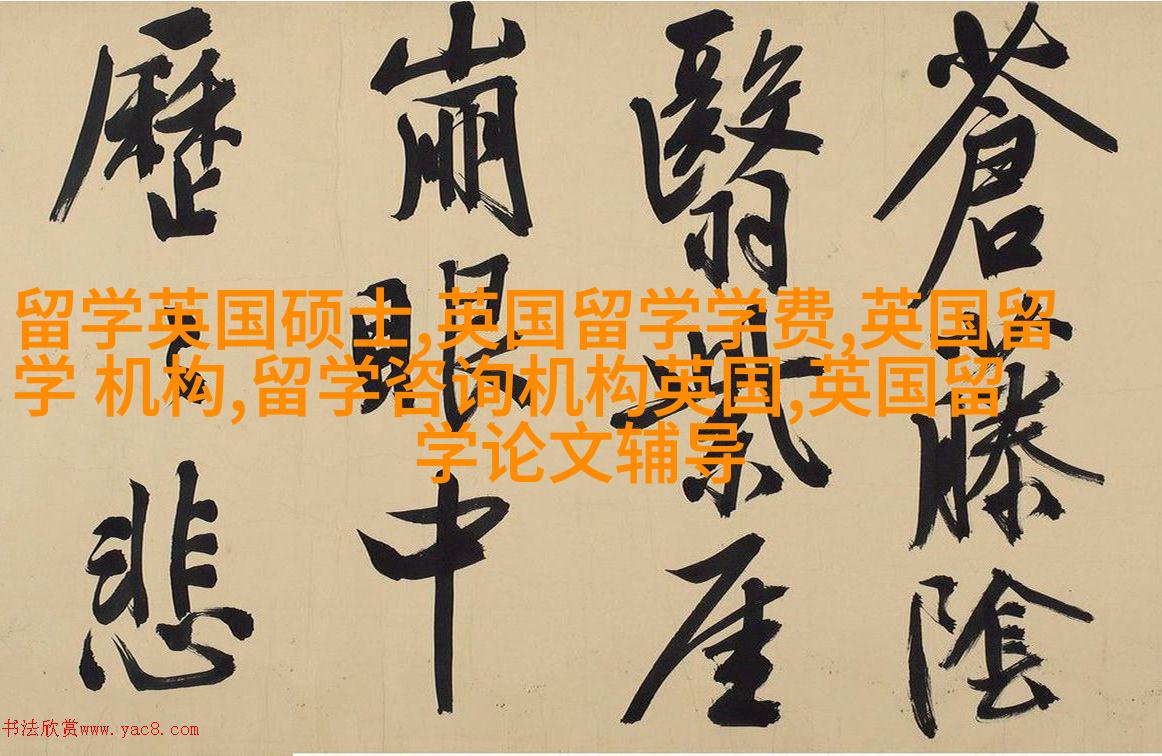 蒼藤陰
翳紫厓
崩眼中
歷悲
留学英国硕士,英国留学学费,英国留
学 机构,留学咨询机构英国,英国留
学论文辅导
书法欣赏www.yac8.com